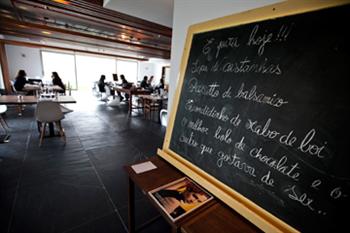 É para hoje!!!
Sopa de castanhas
Risotto de balsâmico
Escondidinho de rabo de boi
o melhor bolo de chocolate e o
outro que gostava de
ser...